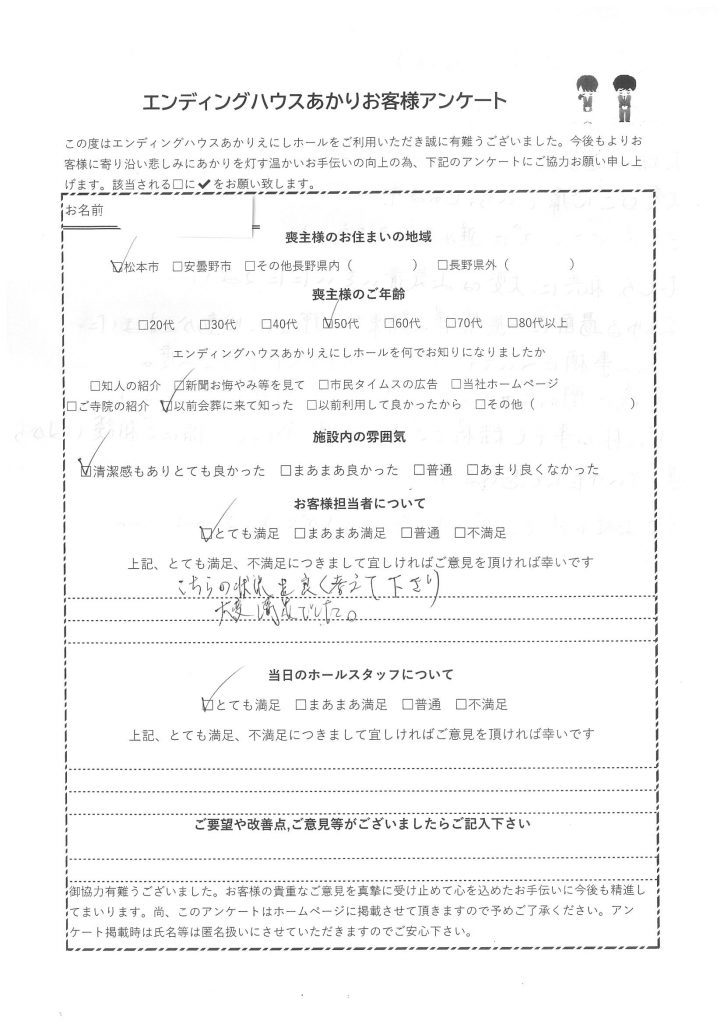 エンディングハウスあかりお客様アンケート
この度はエンディングハウスあかりえにしホールをご利用いただき誠に有難うございました。今後もよりお
客様に寄り沿い悲しみにあかりを灯す温かいお手伝いの向上の為、下記のアンケートにご協力お願い申し上
げます。該当される□に✔をお願い致します。
お名前
喪主様のお住まいの地域
☑松本市 □安曇野市 □その他長野県内（ ） □長野県外（ ）
喪主様のご年齢
□20代 □30代 □40代 ☑50代 □60代 □70代 □80代以上
エンディングハウスあかりえにしホールを何でお知りになりましたか
□知人の紹介 □新聞お悔やみ等を見て □市民タイムスの広告 □当社ホームページ
□ご寺院の紹介 ☑以前会葬に来て知った □以前利用して良かったから □その他（ ）
施設内の雰囲気
☑清潔感もありとても良かった □まあまあ良かった □普通 □あまり良くなかった
お客様担当者について
☑とても満足 □まあまあ満足 □普通 □不満足
上記、とても満足、不満足につきまして宜しければご意見を頂ければ幸いです
こちらの状況を良く考えて下さり
大変満足でした。
当日のホールスタッフについて
☑とても満足 □まあまあ満足 □普通 □不満足
上記、とても満足、不満足につきまして宜しければご意見を頂ければ幸いです
ご要望や改善点,ご意見等がございましたらご記入下さい
御協力有難うございました。お客様の貴重なご意見を真摯に受け止めて心を込めたお手伝いに今後も精進し
てまいります。尚、このアンケートはホームページに掲載させて頂きますので予めご了承ください。アン
ケート掲載時は氏名等は匿名扱いにさせていただきますのでご安心下さい。